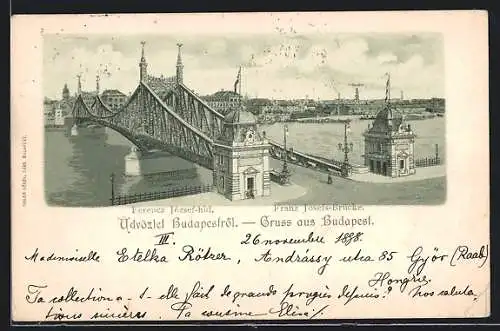 Ferencz József-híd. Franz Josefs-Brücke.
Üdvözlet Budapestről. — Gruss aus Budapest.
III. 26 novembre 1898.
Mademoiselle Etelka Rötzer, Andrássy utca 85 Györ (Raab)
Hongrie.
Ta collection a-t-elle fait de grands progrès depuis? Nos saluta-
tions sincères. Ta cousine Elise